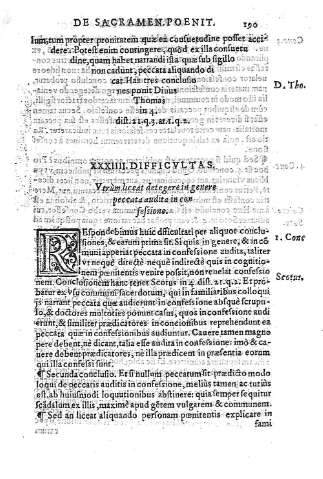 DE SACRAMEN. POENIT. 190
lum, tum propter pronitatem quæ ex consuetudine posset acci
dere. Potest enim contingere, quòd ex illa consuetu
dine, quam habet narrandi illa quæ sub sigillo
non cadunt, peccata aliquando di
cat. Has tres conclusio
nes ponit Diuus
Thomas
in 4.
dist. 21. q. 3. art. 1. q. 2.
D. Tho.
XXIIII. DIFFICVLTAS.
Vtrùm liceat detegere in genere
peccata audita in con
fessione.
REspondebimus huic difficultati per aliquot conclu
siones, & earum prima sit. Si quis in genere, & in cō
muni aperiat peccata in confessione audita, taliter
vt neque directè neque indirectè quis in cognitio
nem pœnitentis venire possit, non reuelat confessio
nem. Conclusionem hanc tenet Scotus in 4. dist. 21. q. 2. Et pro
batur ex vsu communi sacerdotum, qui in familiaribus colloqui
js narrant peccata quæ audierunt in confessione absque scrupu
lo, & doctores moltoties ponunt casus, quos in confessione audi
erunt, & similiter prædicatores in concionibus reprehendunt ea
peccata quæ in confessionibus audiuntur. Cauere tamen magno
pere debent, nè dicant, talia esse audita in confessione: imò & ca
uere debent prædicatores, nè illa prædicent in præsentia eorum
qui illa confessi sunt.
1. Conc
Scotus.
¶ Secunda conclusio. Et si nullum peccatum sit prædicto modo
loqui de peccatis auditis in confessione, melius tamen ac tutius
est, ab huiusmodi loquutionibus abstinere: quia semper sequitur
scādalum ex illis, maximè apud gētem vulgarem & communem.
¶ Sed an liceat aliquando personam pœnitentis explicare in
fami